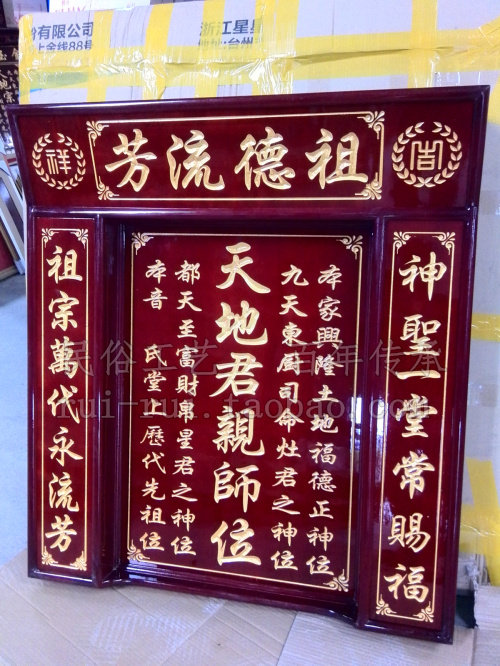 有限公司
上金线88号
浙江星星
祖德流芳
吉
祥
神聖一堂常賜福
本家興隆土地福德正神位
九天東厨司命灶君之神位
天地君親師位
都天至富財帛星君之神位
本音 氏堂上歷代先祖位
祖宗萬代永流芳
民俗工艺 百年传承
rui-rui.taobao.com